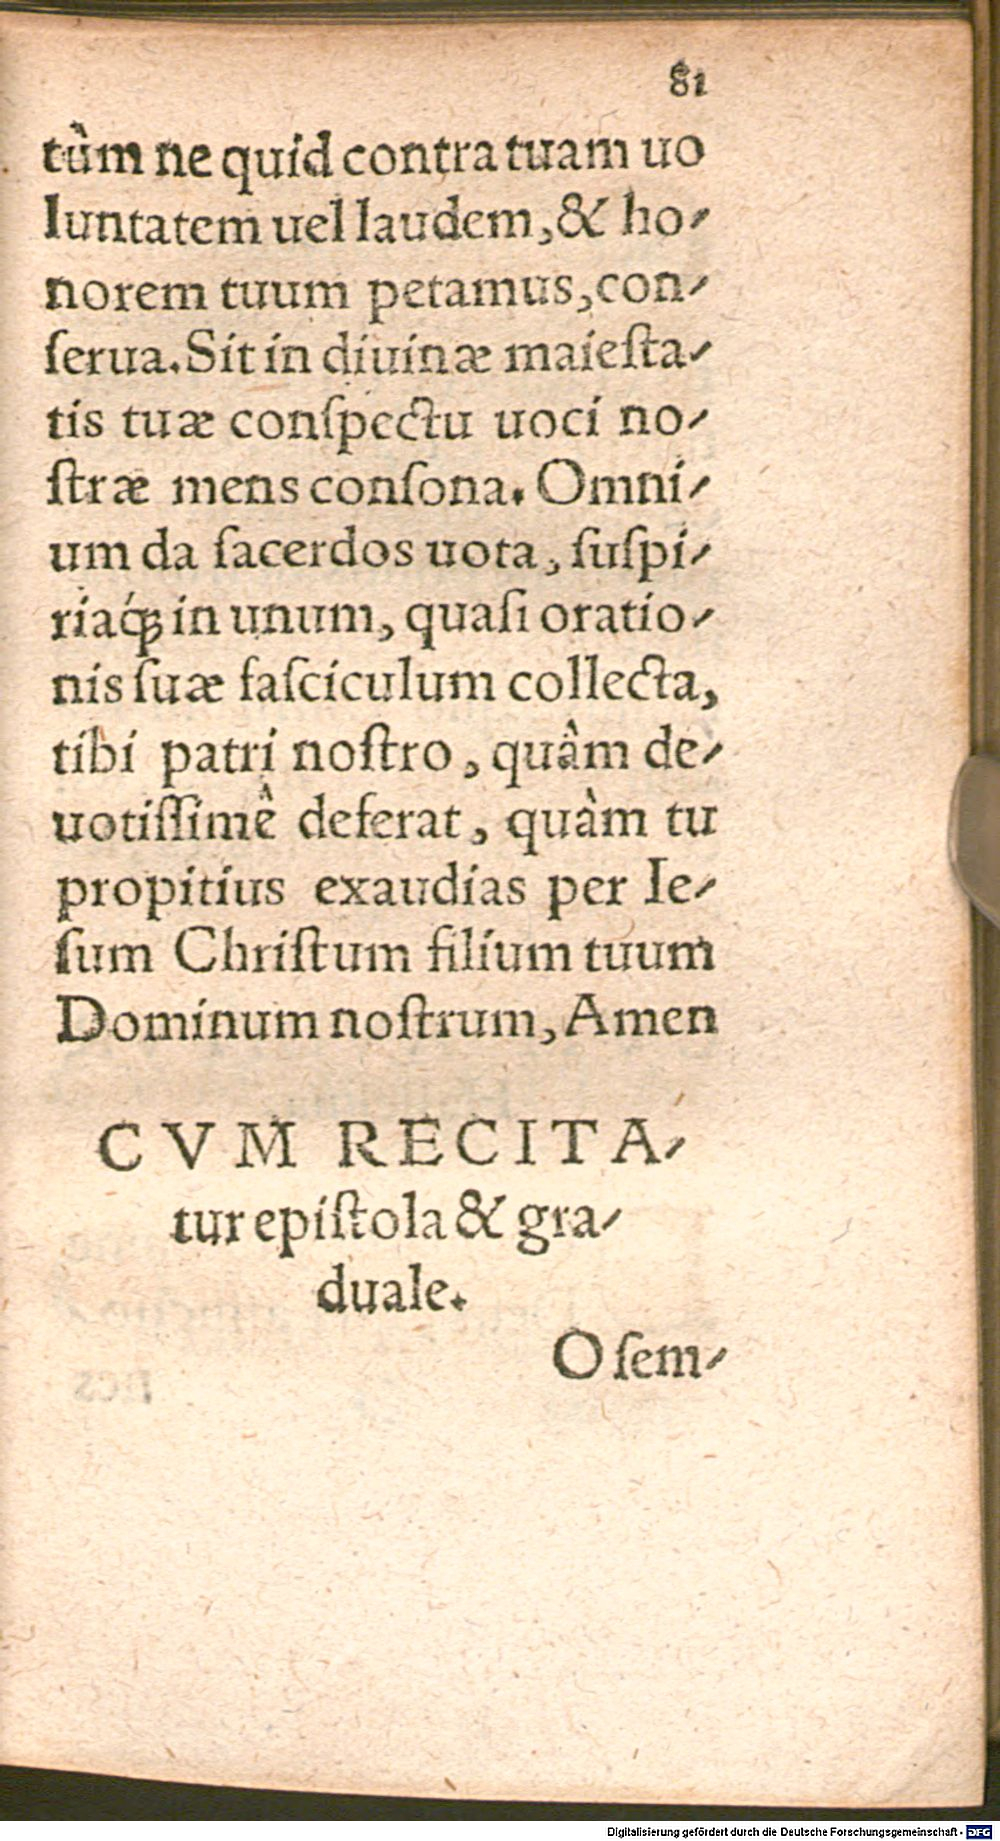 81
tùm ne quid contra tuam uo
luntatem uel laudem, & ho-
norem tuum petamus, con-
ſerua. Sit in diuinæ maieſta-
tis tuæ conſpectu uoci no-
ſtræ mens conſona. Omni-
um da ſacerdos uota, ſuſpi-
riaq́ꝫ in unum, quaſi oratio-
nis ſuæ faſciculum collecta,
tibi patri noſtro, quâm de-
uotiſſimê deferat, quàm tu
propitius exaudias per Ie-
ſum Chriſtum filium tuum
Dominum noſtrum, Amen
CVM RECITA-
tur epiſtola & gra-
duale.
O ſem-
Digitalisierung gefördert durch die Deutsche Forschungsgemeinschaft - DFG